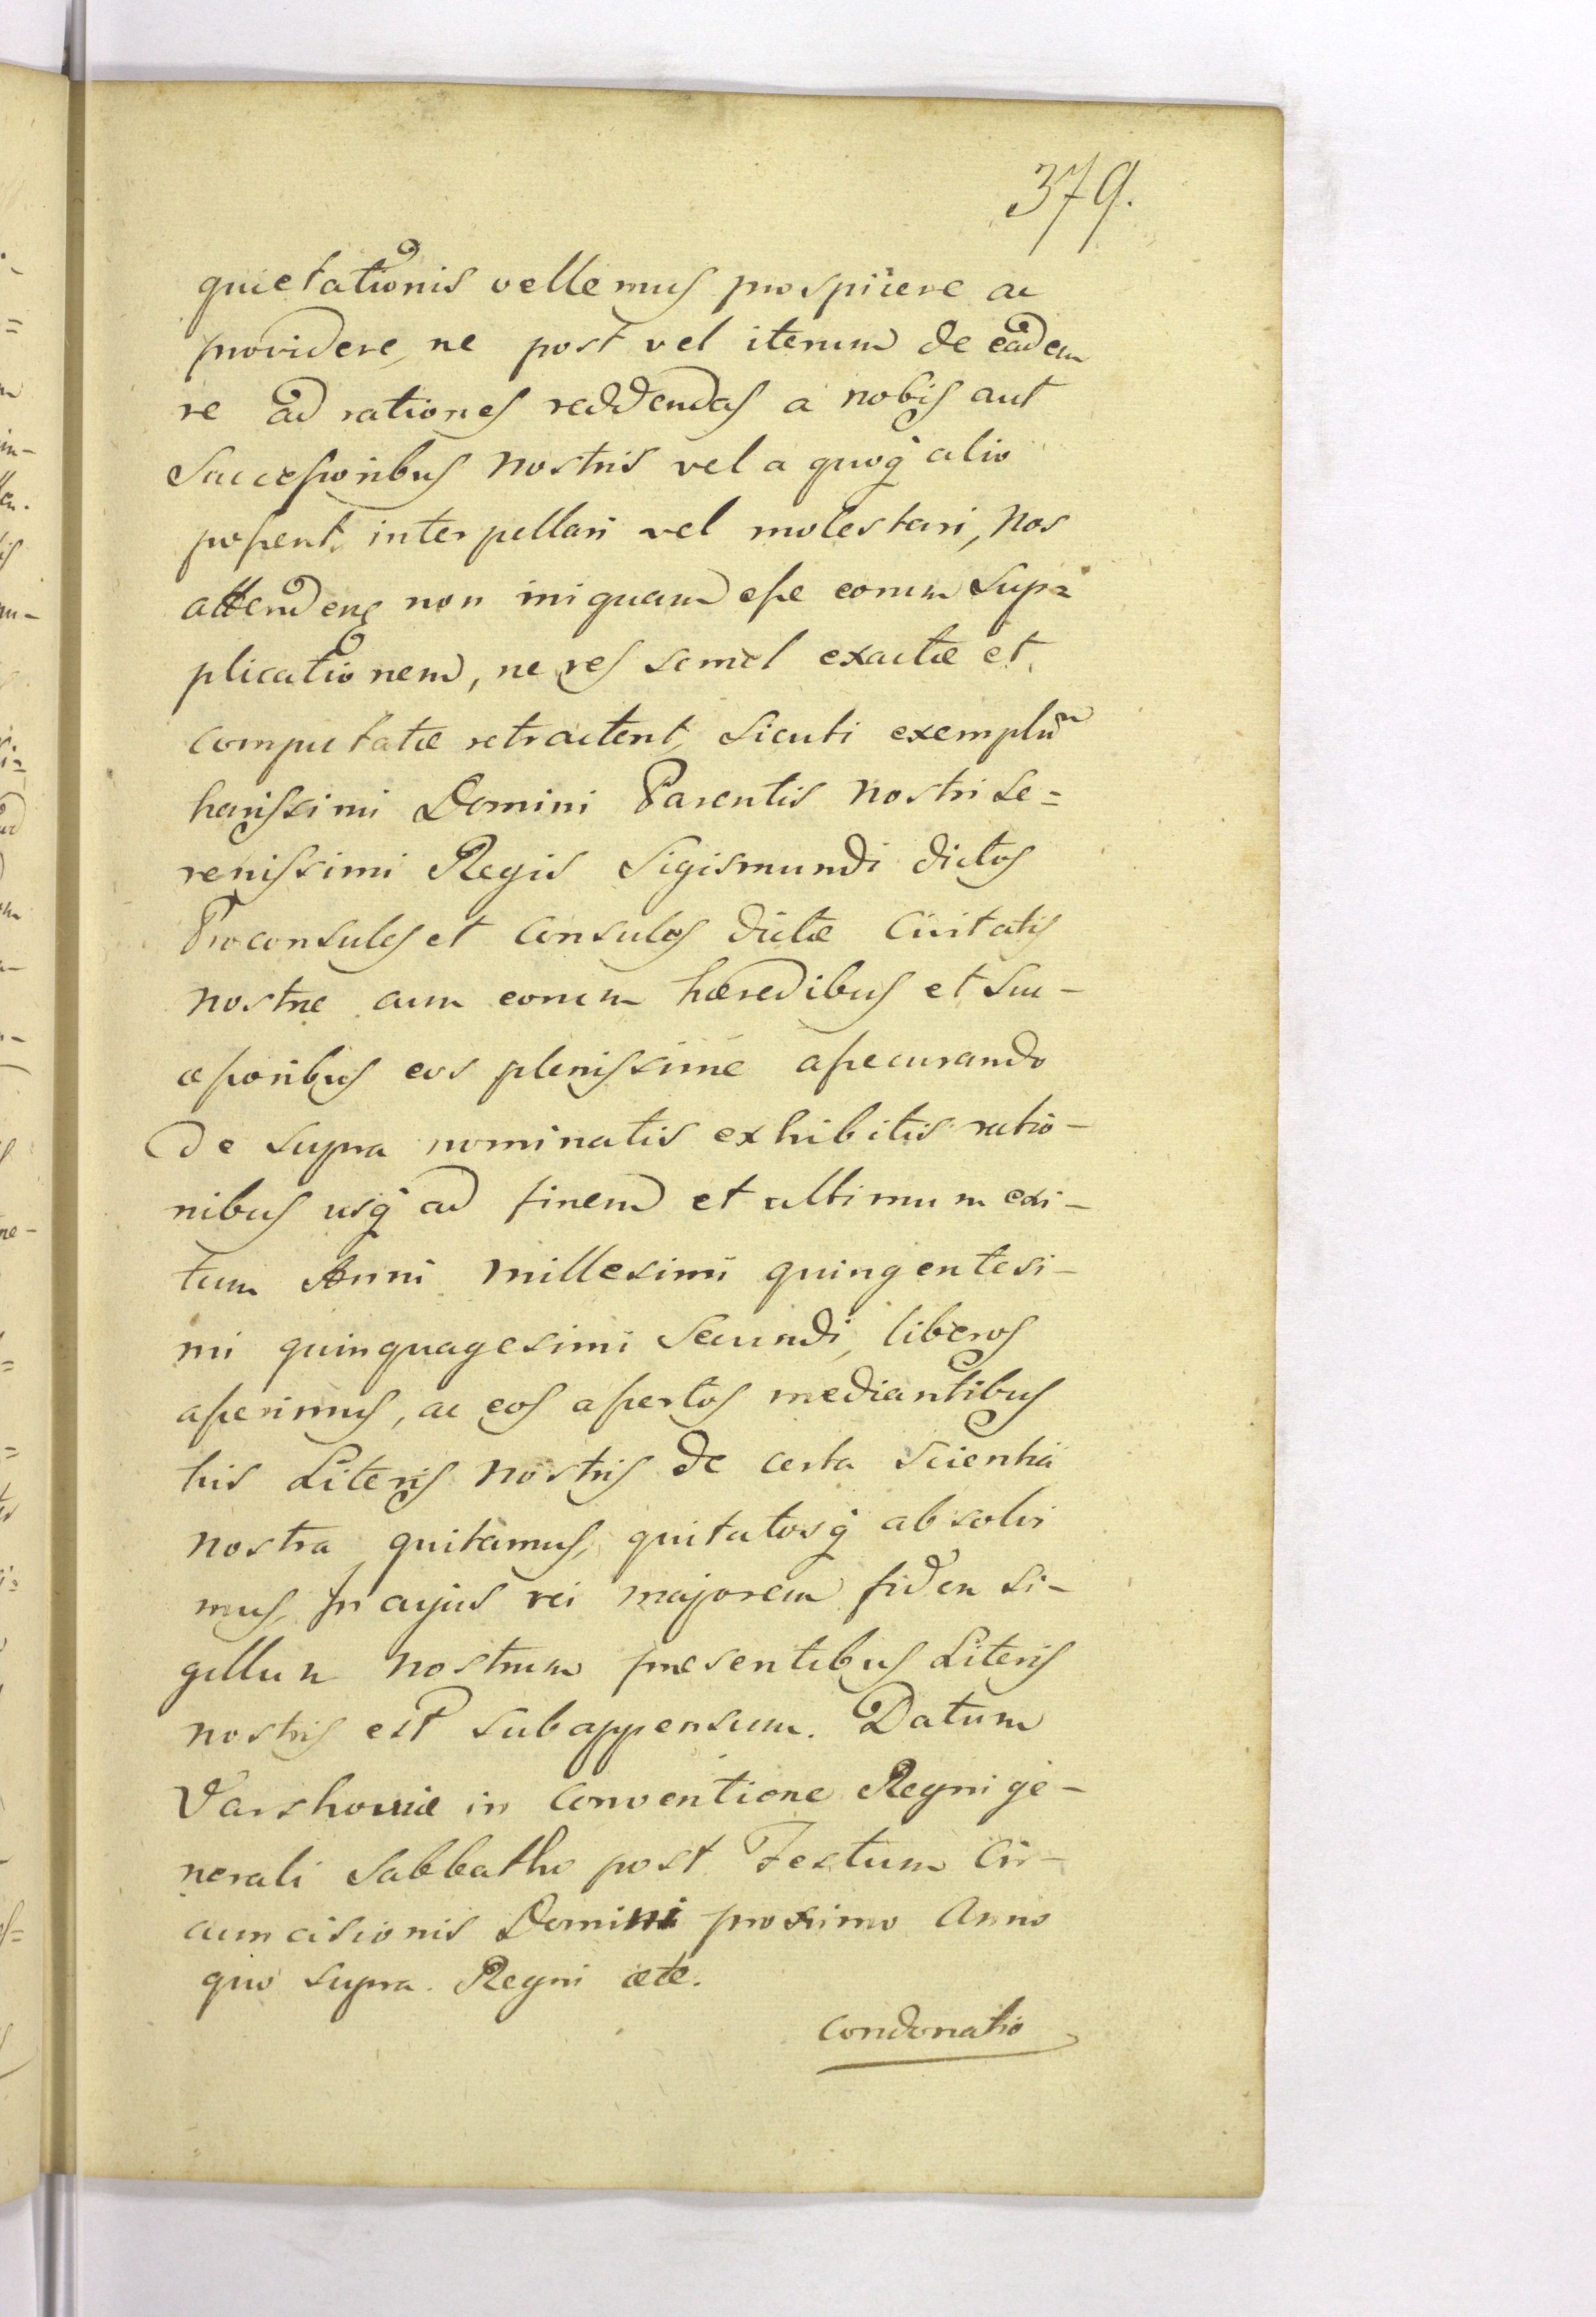 379.
quietationis vellemus prospicere ac
providere, ne post vel iterum de eadem
re ad rationes reddendas a nobis aut
Successoribus nostris vel a quoq̃ alio
possent interpellari vel molestari, Nos
attendens non iniquam esse eorum Sup=
plicationem, ne res semel exactæ et
computatæ retractent, sicuti exemplũ
harissimi Domini Parentis Nostri Se=
renissimi Regis Sigismundi dictos
Proconsules et Consules dictæ Civitatis
nostræ cum eorum hæredibus et Suc-
cessoribus eos plenissime assecurando
de supra nominatis exhibitis ratio-
nibus usq̃ ad finem et ultimum exi-
tum Anni Millesimi quingentesi-
mi quinquagesimi Secundi, liberos
asserimus, ac eos assertos mediantibus
his Literis Nostris de certa scientia
nostra quitamus, quitatosq̃ absolvi
mus, In cujus rei majorem fidem Si-
gillum Nostrum præsentibus Literis
nostris est subappensum. Datum
Varshoviæ in Conventione Regni ge-
nerali Sabbatho post Festum Cir-
cumcisionis Domini proximo Anno
quo supra. Regni etc.
Condonatio